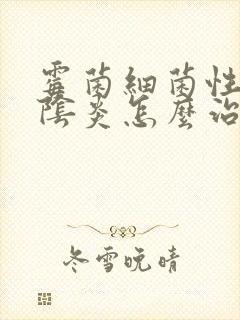 霉菌細菌性
陰炎怎麼治
冬雪晚晴